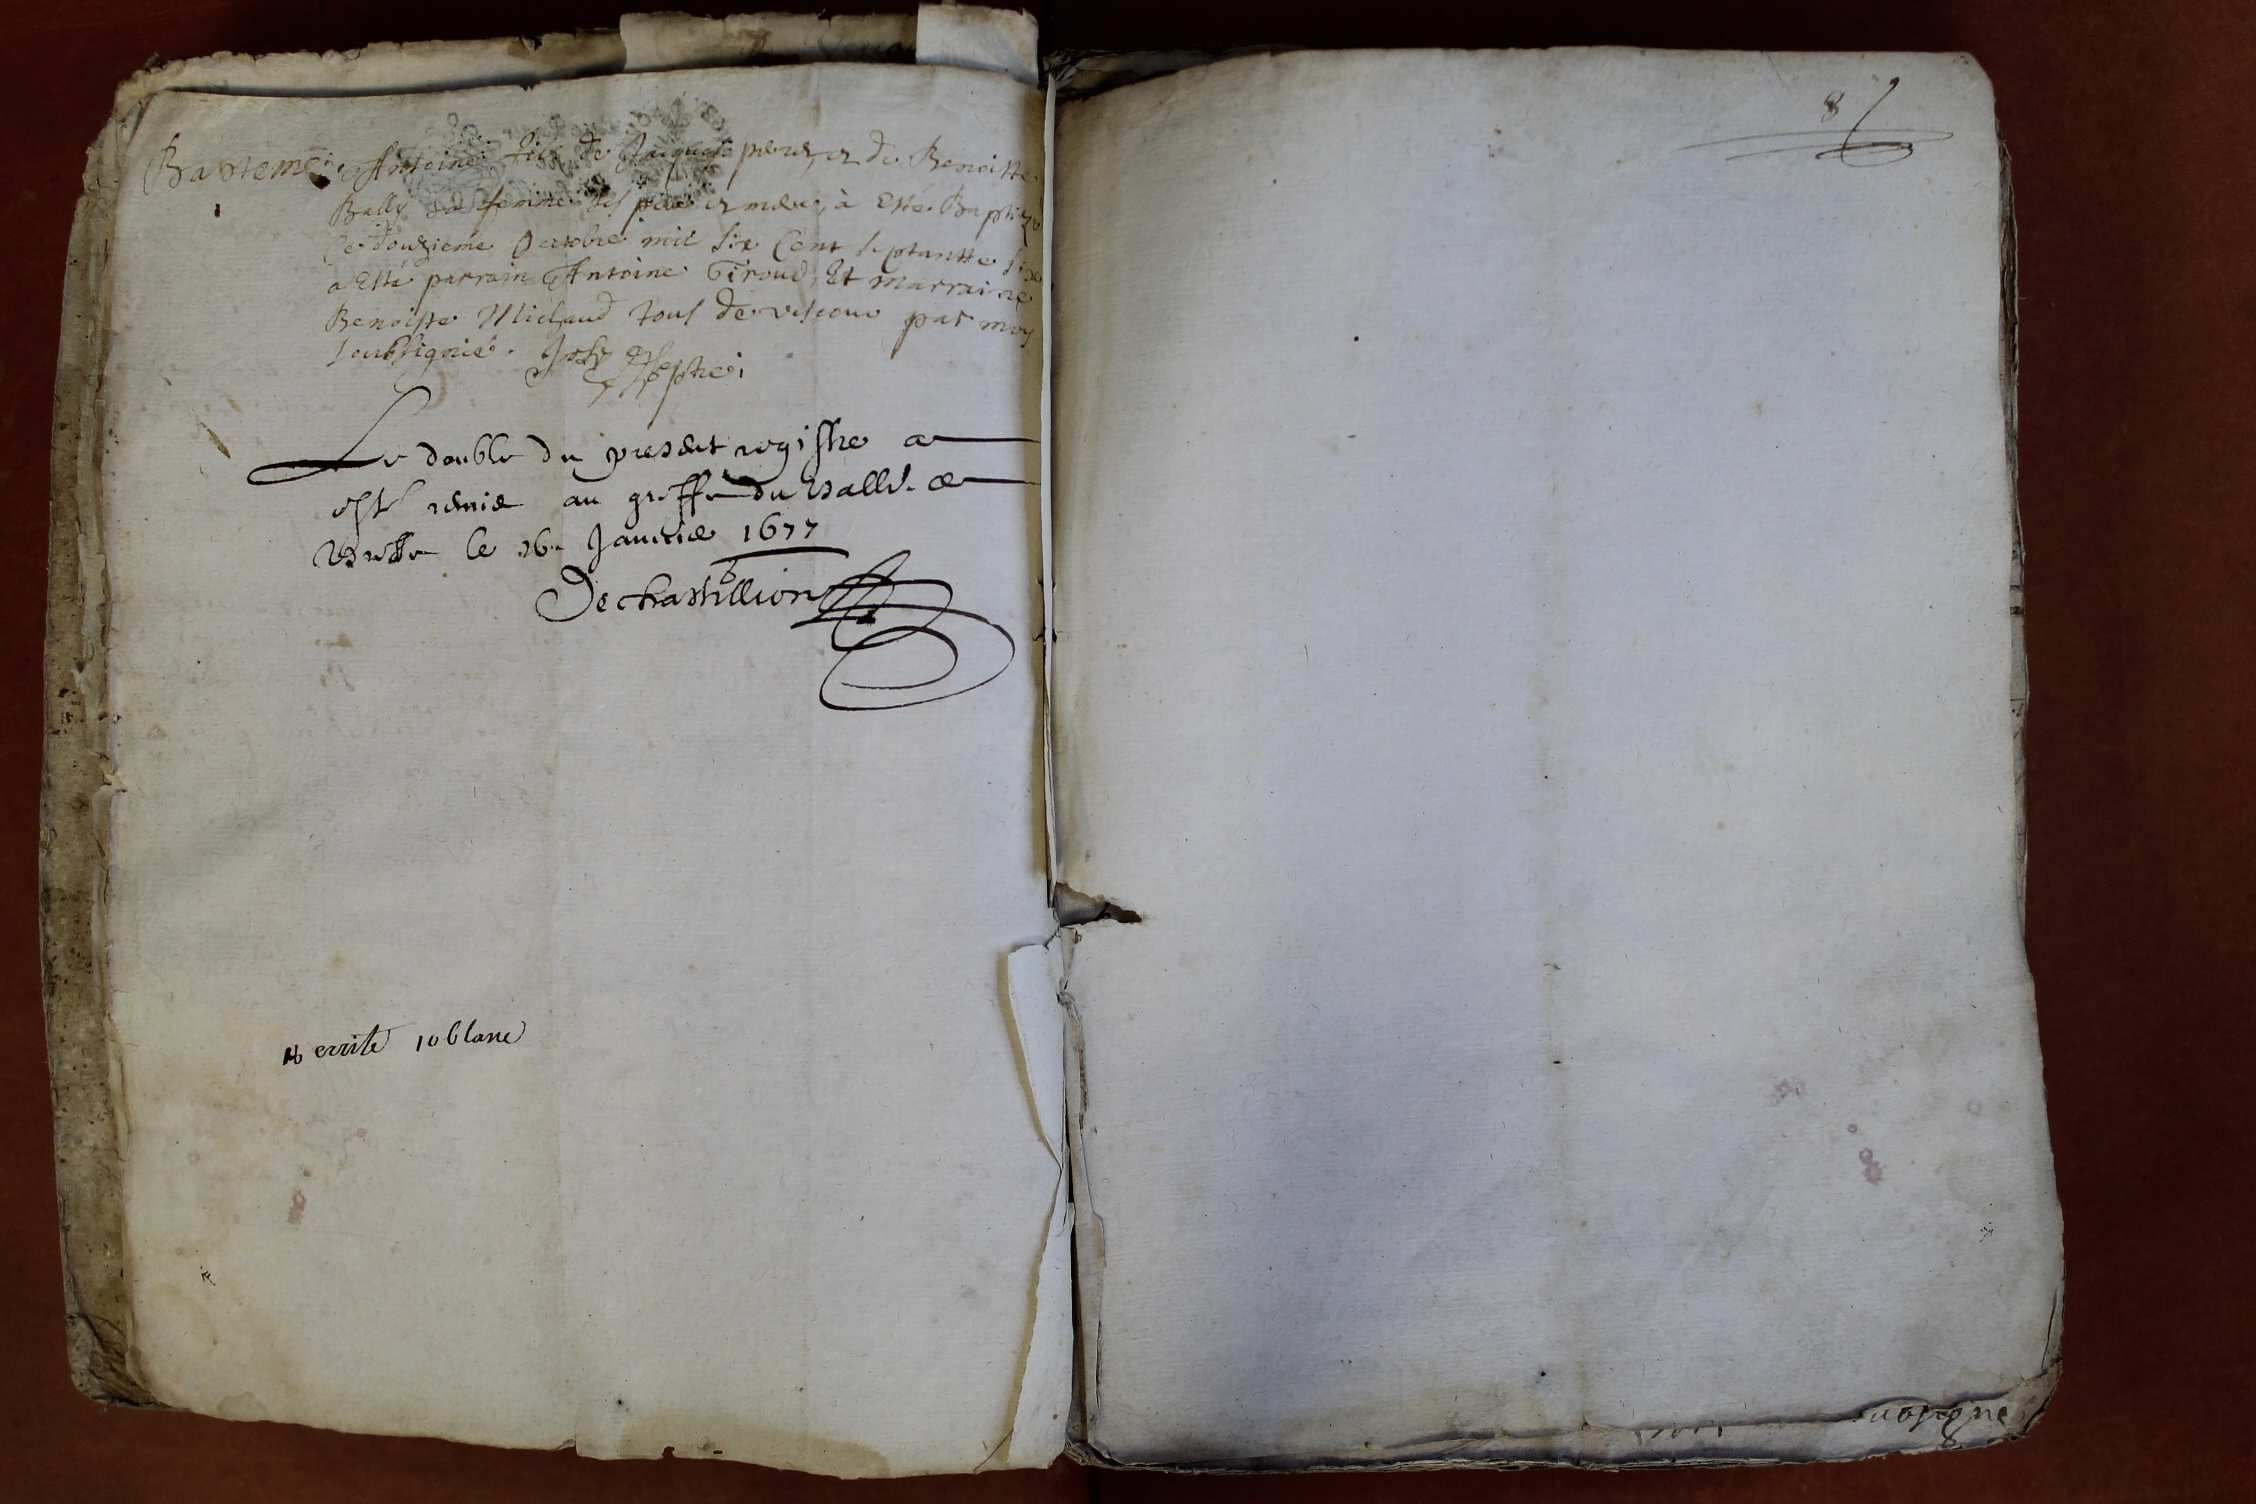 Bapteme Antoine fils de Jacques perez et de Benoiste
Bally sa femme ses pere et mere, à Esté Baptizé
Ce douzieme Octobre mil six Cent septantte six
a Esté parrain Antoine Giroud, Et marraine
Benoiste Michaud tous de par moy
soubsigné
Le double du present registre a
esté remis au greffe du Balle. de
le 26e Janvier 1677
Dechastillion
10 blanc
8